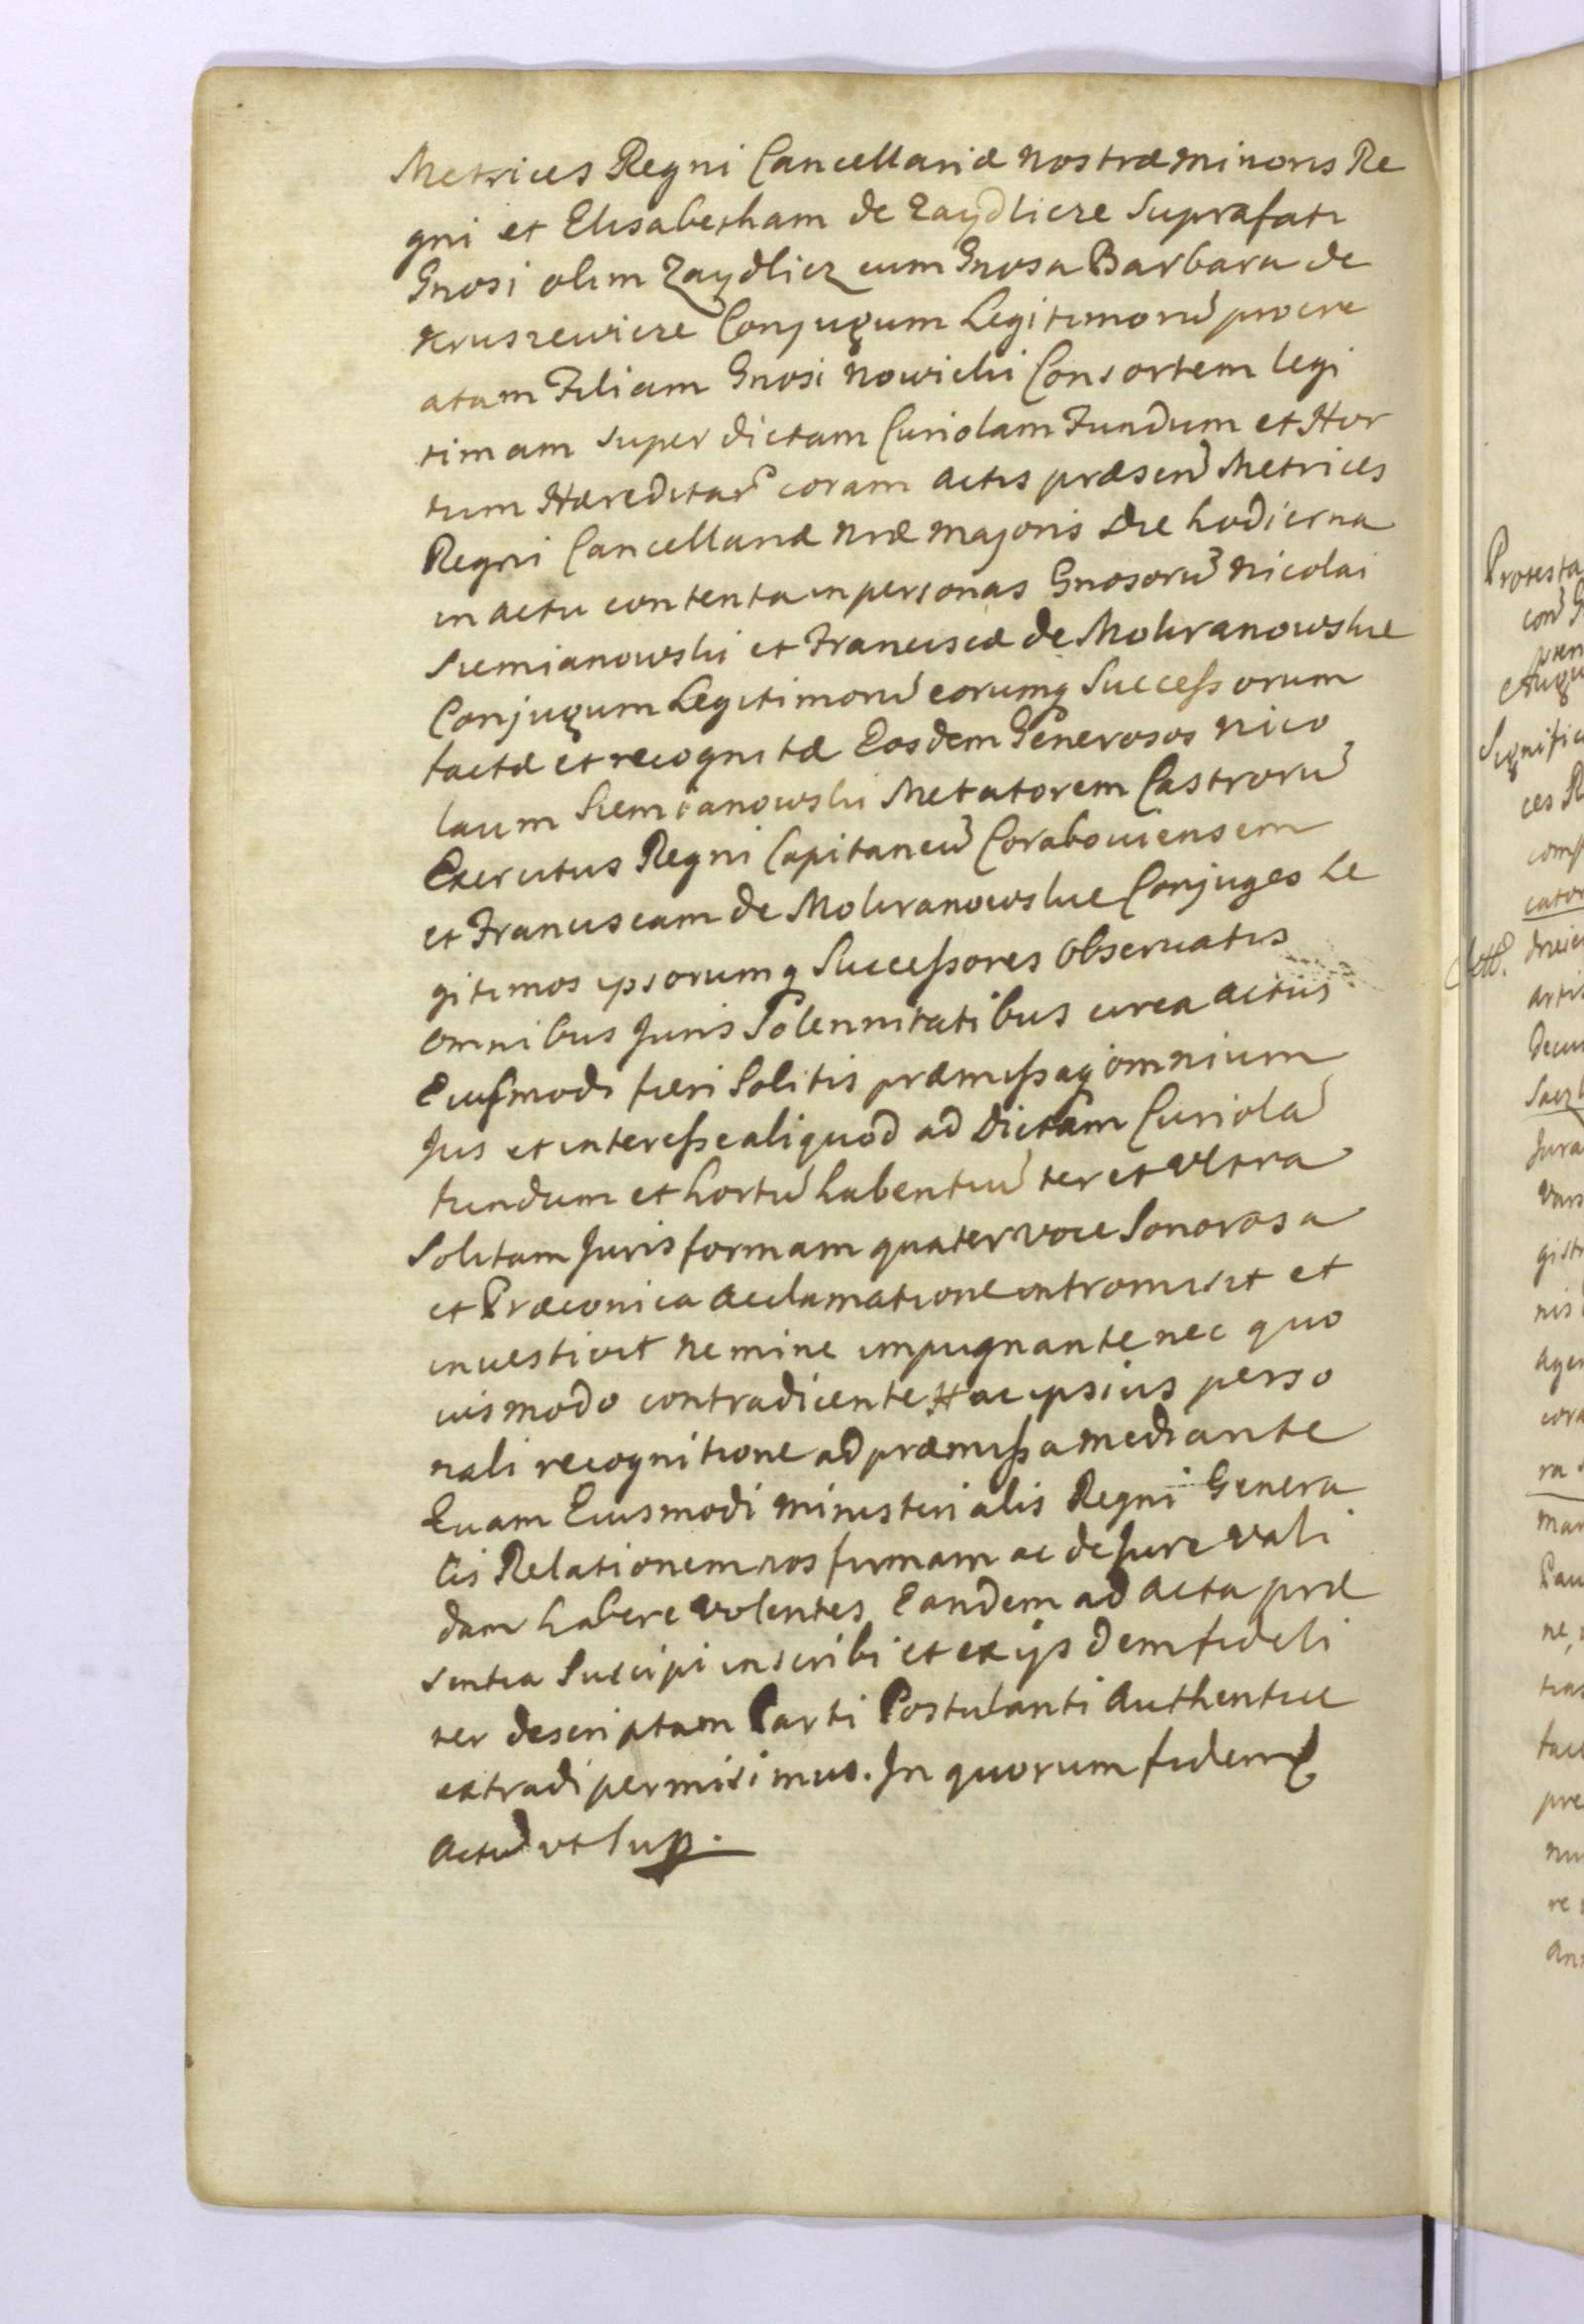 Metrices Regni Cancellariæ nostræ minoris Re
gni et Elisabetham de Zaydlicze Suprafati
Gnosi olim Zaydlicz cum Gnosa Barbara de
Kruszewicze Conjugum Legitimorũ procre
atam Filiam Gnosi Nowicki Consortem legi
timam super dictam Curiolam Fundum et Hor
tum Hæreditar coram actis præsenũ Metrices
Regni Cancellariæ nræ majoris die hodierna
in actu contenta in personas Gnosorũ Nicolai
Siemianowski et Franciscæ de Mokranowskie
Conjugum Legitimorũ eorumq Successorum
factæ et recognitæ Eosdem Generosos Nico
laum Siemianowski Metatorem Castrorũ
Exercitus Regni Capitaneũ Corabouiensem
et Franciscam de Mokranowskie Conjuges Le
gitimos ipsorumq Successores Observatis
omnibus Juris Solennitatibus circa actus
Eiusmodi fieri Solitis præmissaq omnium
Jus et interesse aliquod ad Dictam Curiolã
fundum et hortũ habentiũ ter et ultra
Solitam Juris formam quater voce Sonorosa
et Præconica acclamatione intromisit et
inuestivit nemine impugnante nec quo
uismodo contradicente Hac ipsius perso
nali recognitione ad præmissa mediante
Quam Eiusmodi Ministerialis Regni Genera
lis Relationem nos firmam ac de Jure vali
dam habere volentes Eandem ad acta præ
sentia Suscipi inscribi et ex ijsdem fideli
ter descriptam Parti Postulanti Authentice
extradi permisimus. In quorum fidem
Actũ ut Sup.
Protesta
Signific
ces R
comp
cator
artis
Decu
Jura
gistr
nis
agen
cora
ra
mar
Pau
ne
tias
fac
pre
nu
re
an